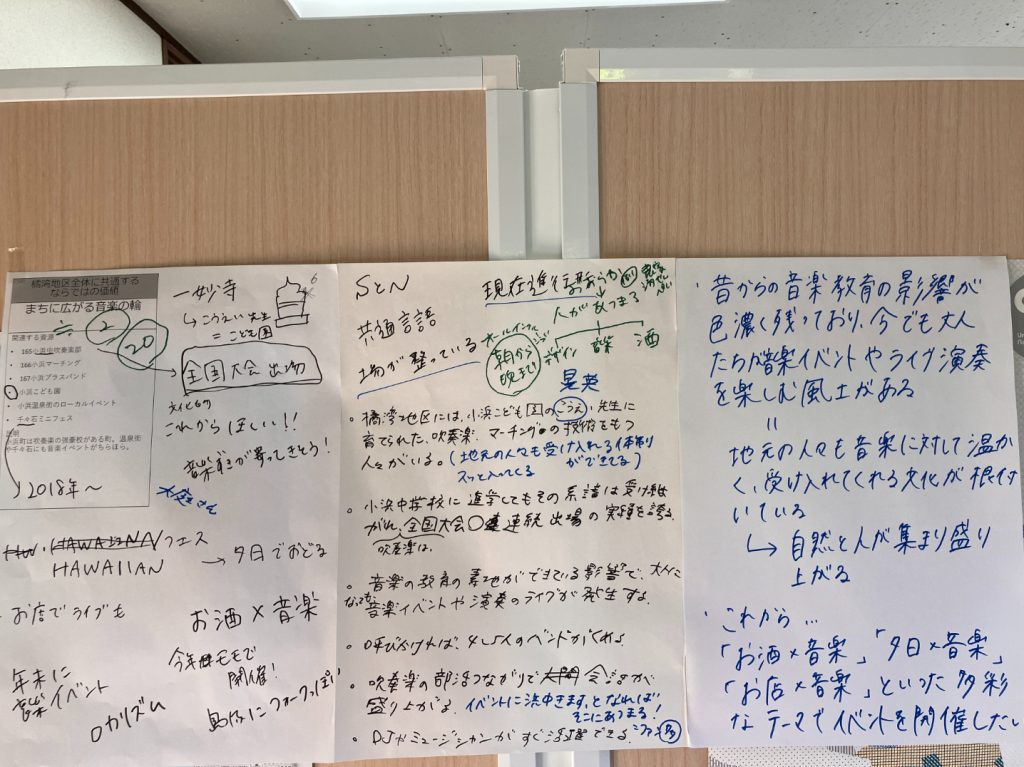 橘湾地区全体に共通する
ならではの価値
まちに広がる音楽の輪
関連する資源
・165小浜中吹奏楽部
・166小浜マーチング
・167小浜ブラスバンド
・小浜こども園
・小浜温泉街のローカルイベント
・千々石ミニフェス
小浜町は吹奏楽の強豪校がある町。温泉街
や千々石にも音楽イベントがちらほら。
2
20
2018年〜
一妙寺
↳こうえい先生
=こども園
6
全国大会出場
文化もの
これからほしい!!
音楽好きが寄ってきそう!
HAWAIIANフェス
HAWAIIAN
→夕日でおどる
お店でライブも
お酒×音楽
今年 モモで
開催!
年末に
音楽イベント
ロカリズム
島外にフォークっぽい
SとN
現在進行形
共通言語
場が整っている
人があつまる
オールインクル
朝から
晩まで
デザイン
音楽
酒
晃英
・橘湾地区には、小浜こども園のこうえい先生に
育てられた、吹奏楽、マーチングの技術をもつ
人々がいる。(地元の人々も受け入れる体制
スッと入ってくる
ができてる)
・小浜中学校に進学してもその系譜は受け継
がれ、全国大会〇連続出場の実績を誇る
吹奏楽は、
・音楽の教育の素地ができている影響で、大人に
なっても音楽イベントや演奏のライブが発生する。
・呼びかければ、4、5人のベンドがくれる
・吹奏楽の部活つながりで 会話が
盛り上がる。イベントに浜中きます、となれば
そこにあつまる!
・DJやミュージシャンがすぐ活躍できる
・昔からの音楽教育の影響が
色濃く残っており、今でも大人
たちが音楽イベントやライヴ演奏
を楽しむ風土がある
=
地元の人々も音楽に対して温か
く、受け入れてくれる文化が根付
いている
↳自然と人が集まり盛り
上がる
・これから…
「お酒×音楽」「夕日×音楽」
「お店×音楽」といった多彩
なテーマでイベントを開催したい